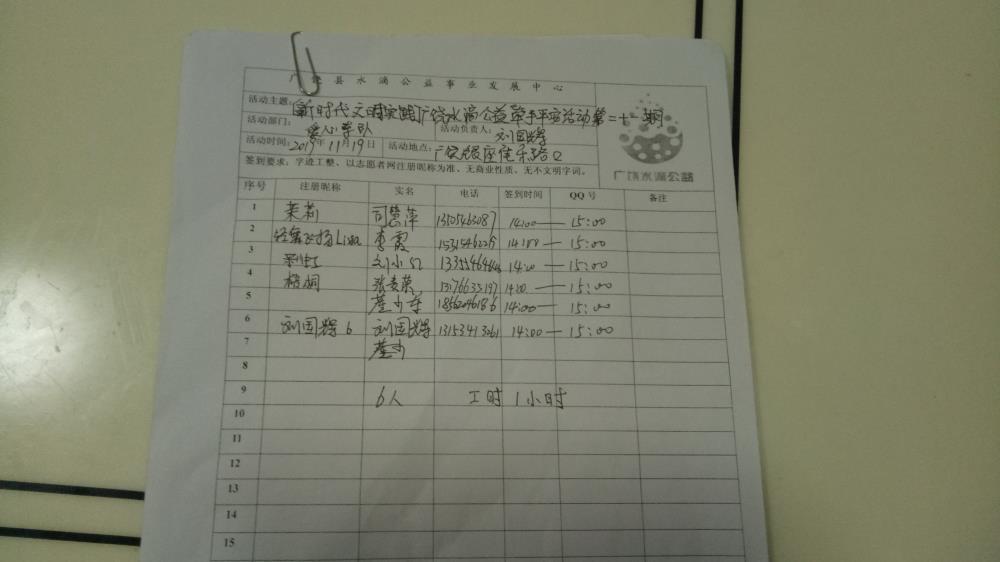 广饶县水滴公益事业发展中心
活动主题：新时代文明实践广饶水滴公益牵手平安活动第二十一期
活动部门：爱心车队 活动负责人：刘国辉
活动时间：2019年11月19日 活动地点：广饶银座佳乐路口
签到要求：字迹工整、以志愿者网注册昵称为准、无商业性质、无不文明字词。
广饶水滴公益
序号 注册昵称 实名 电话 签到时间 QQ号 备注
1 茉莉 司慧萍 14:00 — 15:00
2 轻舞飞扬Lisa 李霞 14:00 — 15:00
3 刘小红 14:00 — 15:00
4 梧桐 张麦荣 14:00 — 15:00
5 14:00 — 15:00
6 刘国辉6 刘国辉 14:00 — 15:00
7
8
9 6人 工时 1小时
10
11
12
13
14
15